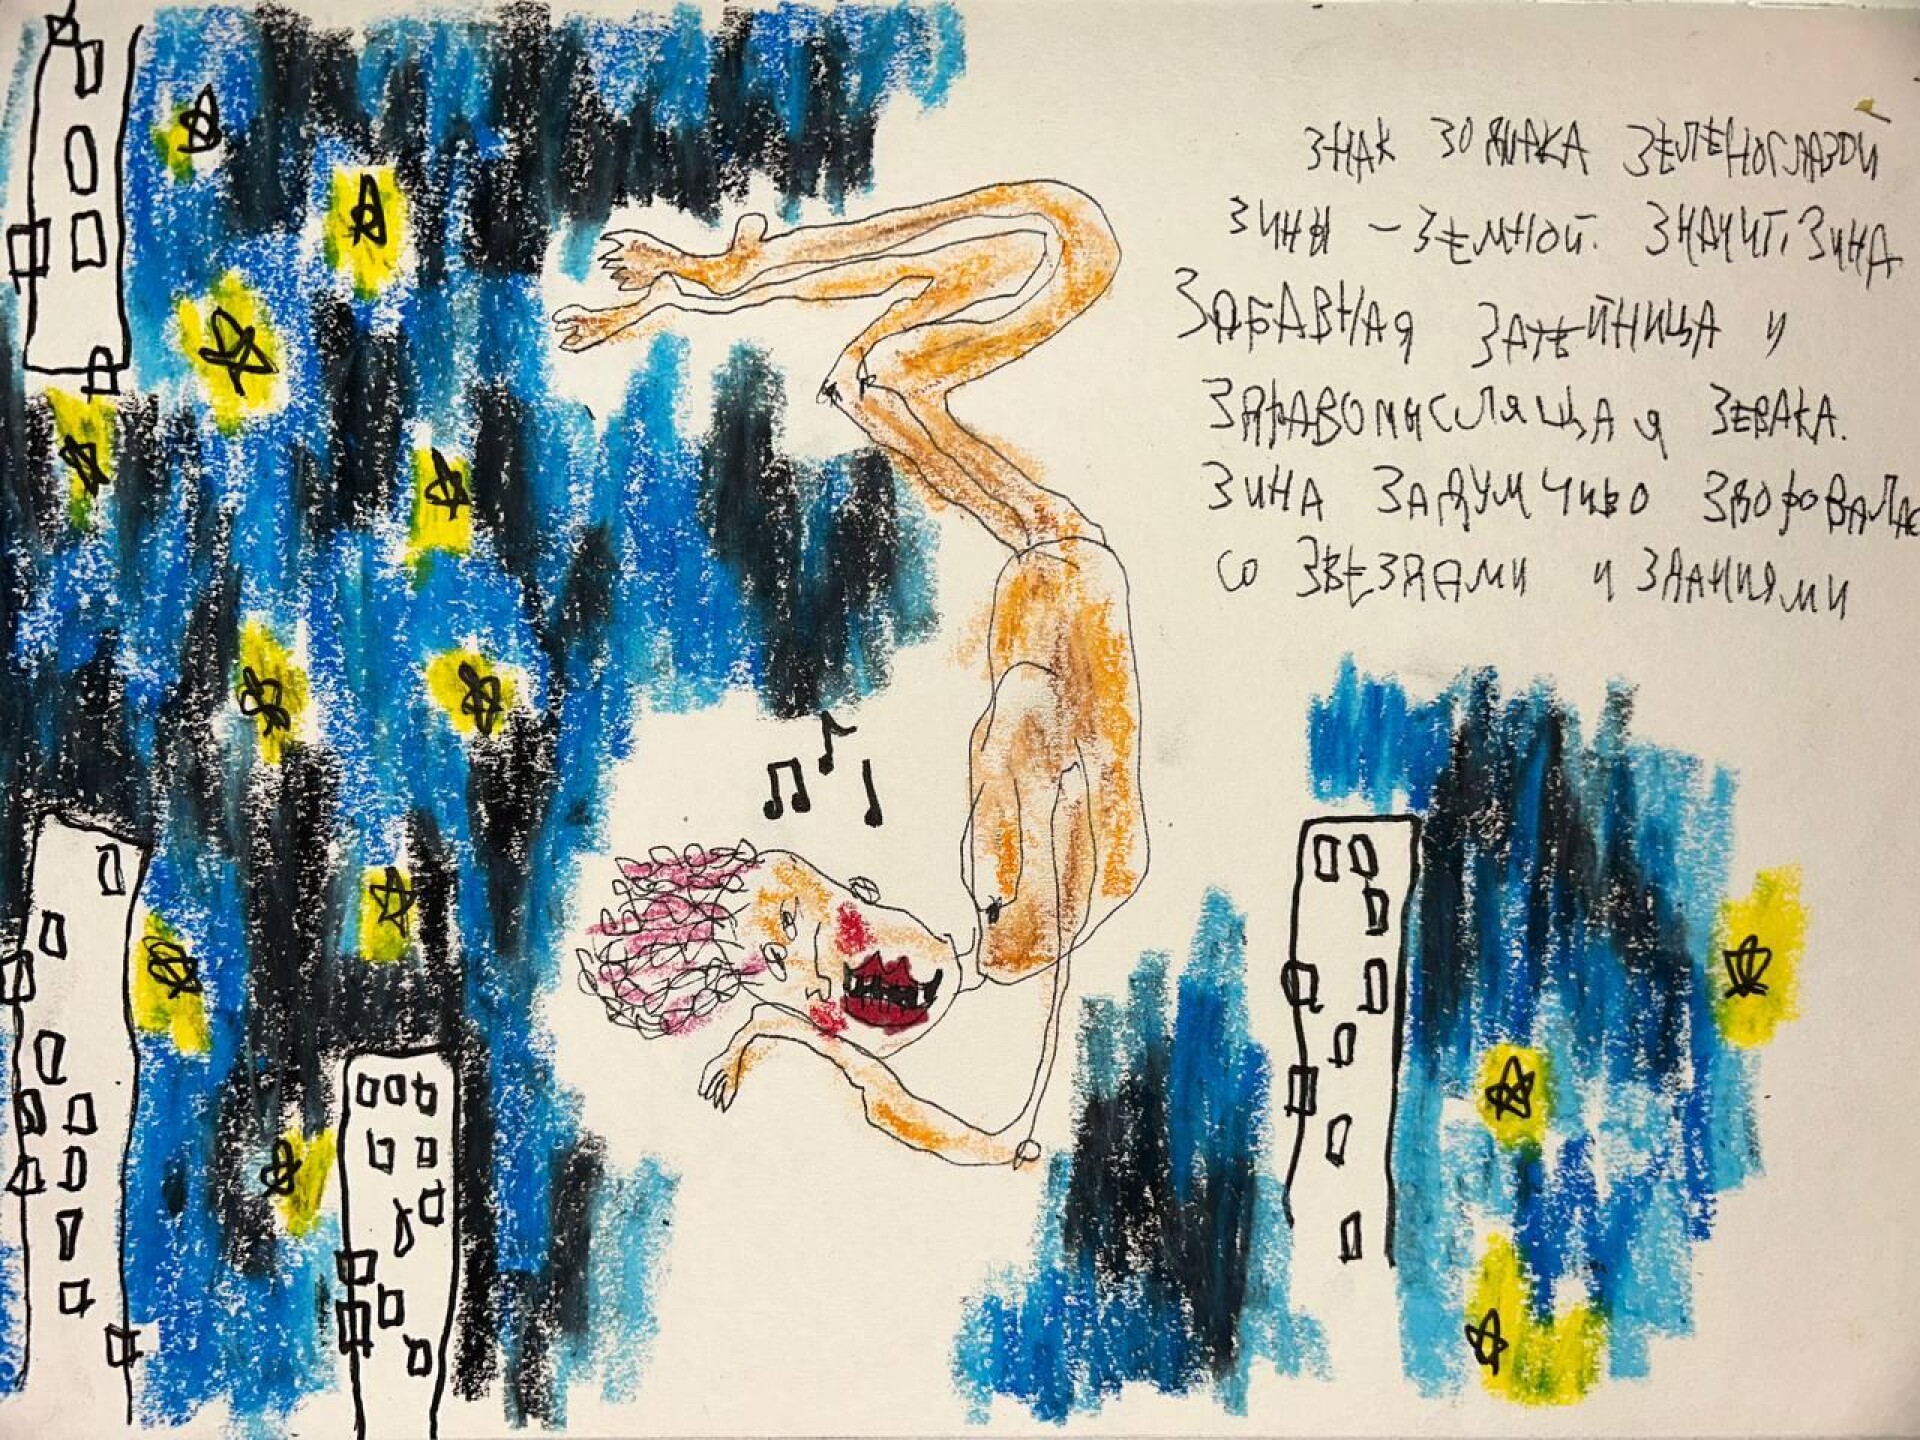 ЗНАК ЗОДИАКА ЗЕЛЕНОГЛАЗОЙ
ЗИНЫ – ЗЕМНОЙ. ЗНАЧИТ, ЗИНА
ЗАБАВНАЯ ЗАТЕЙНИЦА И
ЗДРАВОМЫСЛЯЩАЯ ЗЕВАКА.
ЗИНА ЗАДУМЧИВО
СО ЗВЕЗДАМИ И ЗДАНИЯМИ